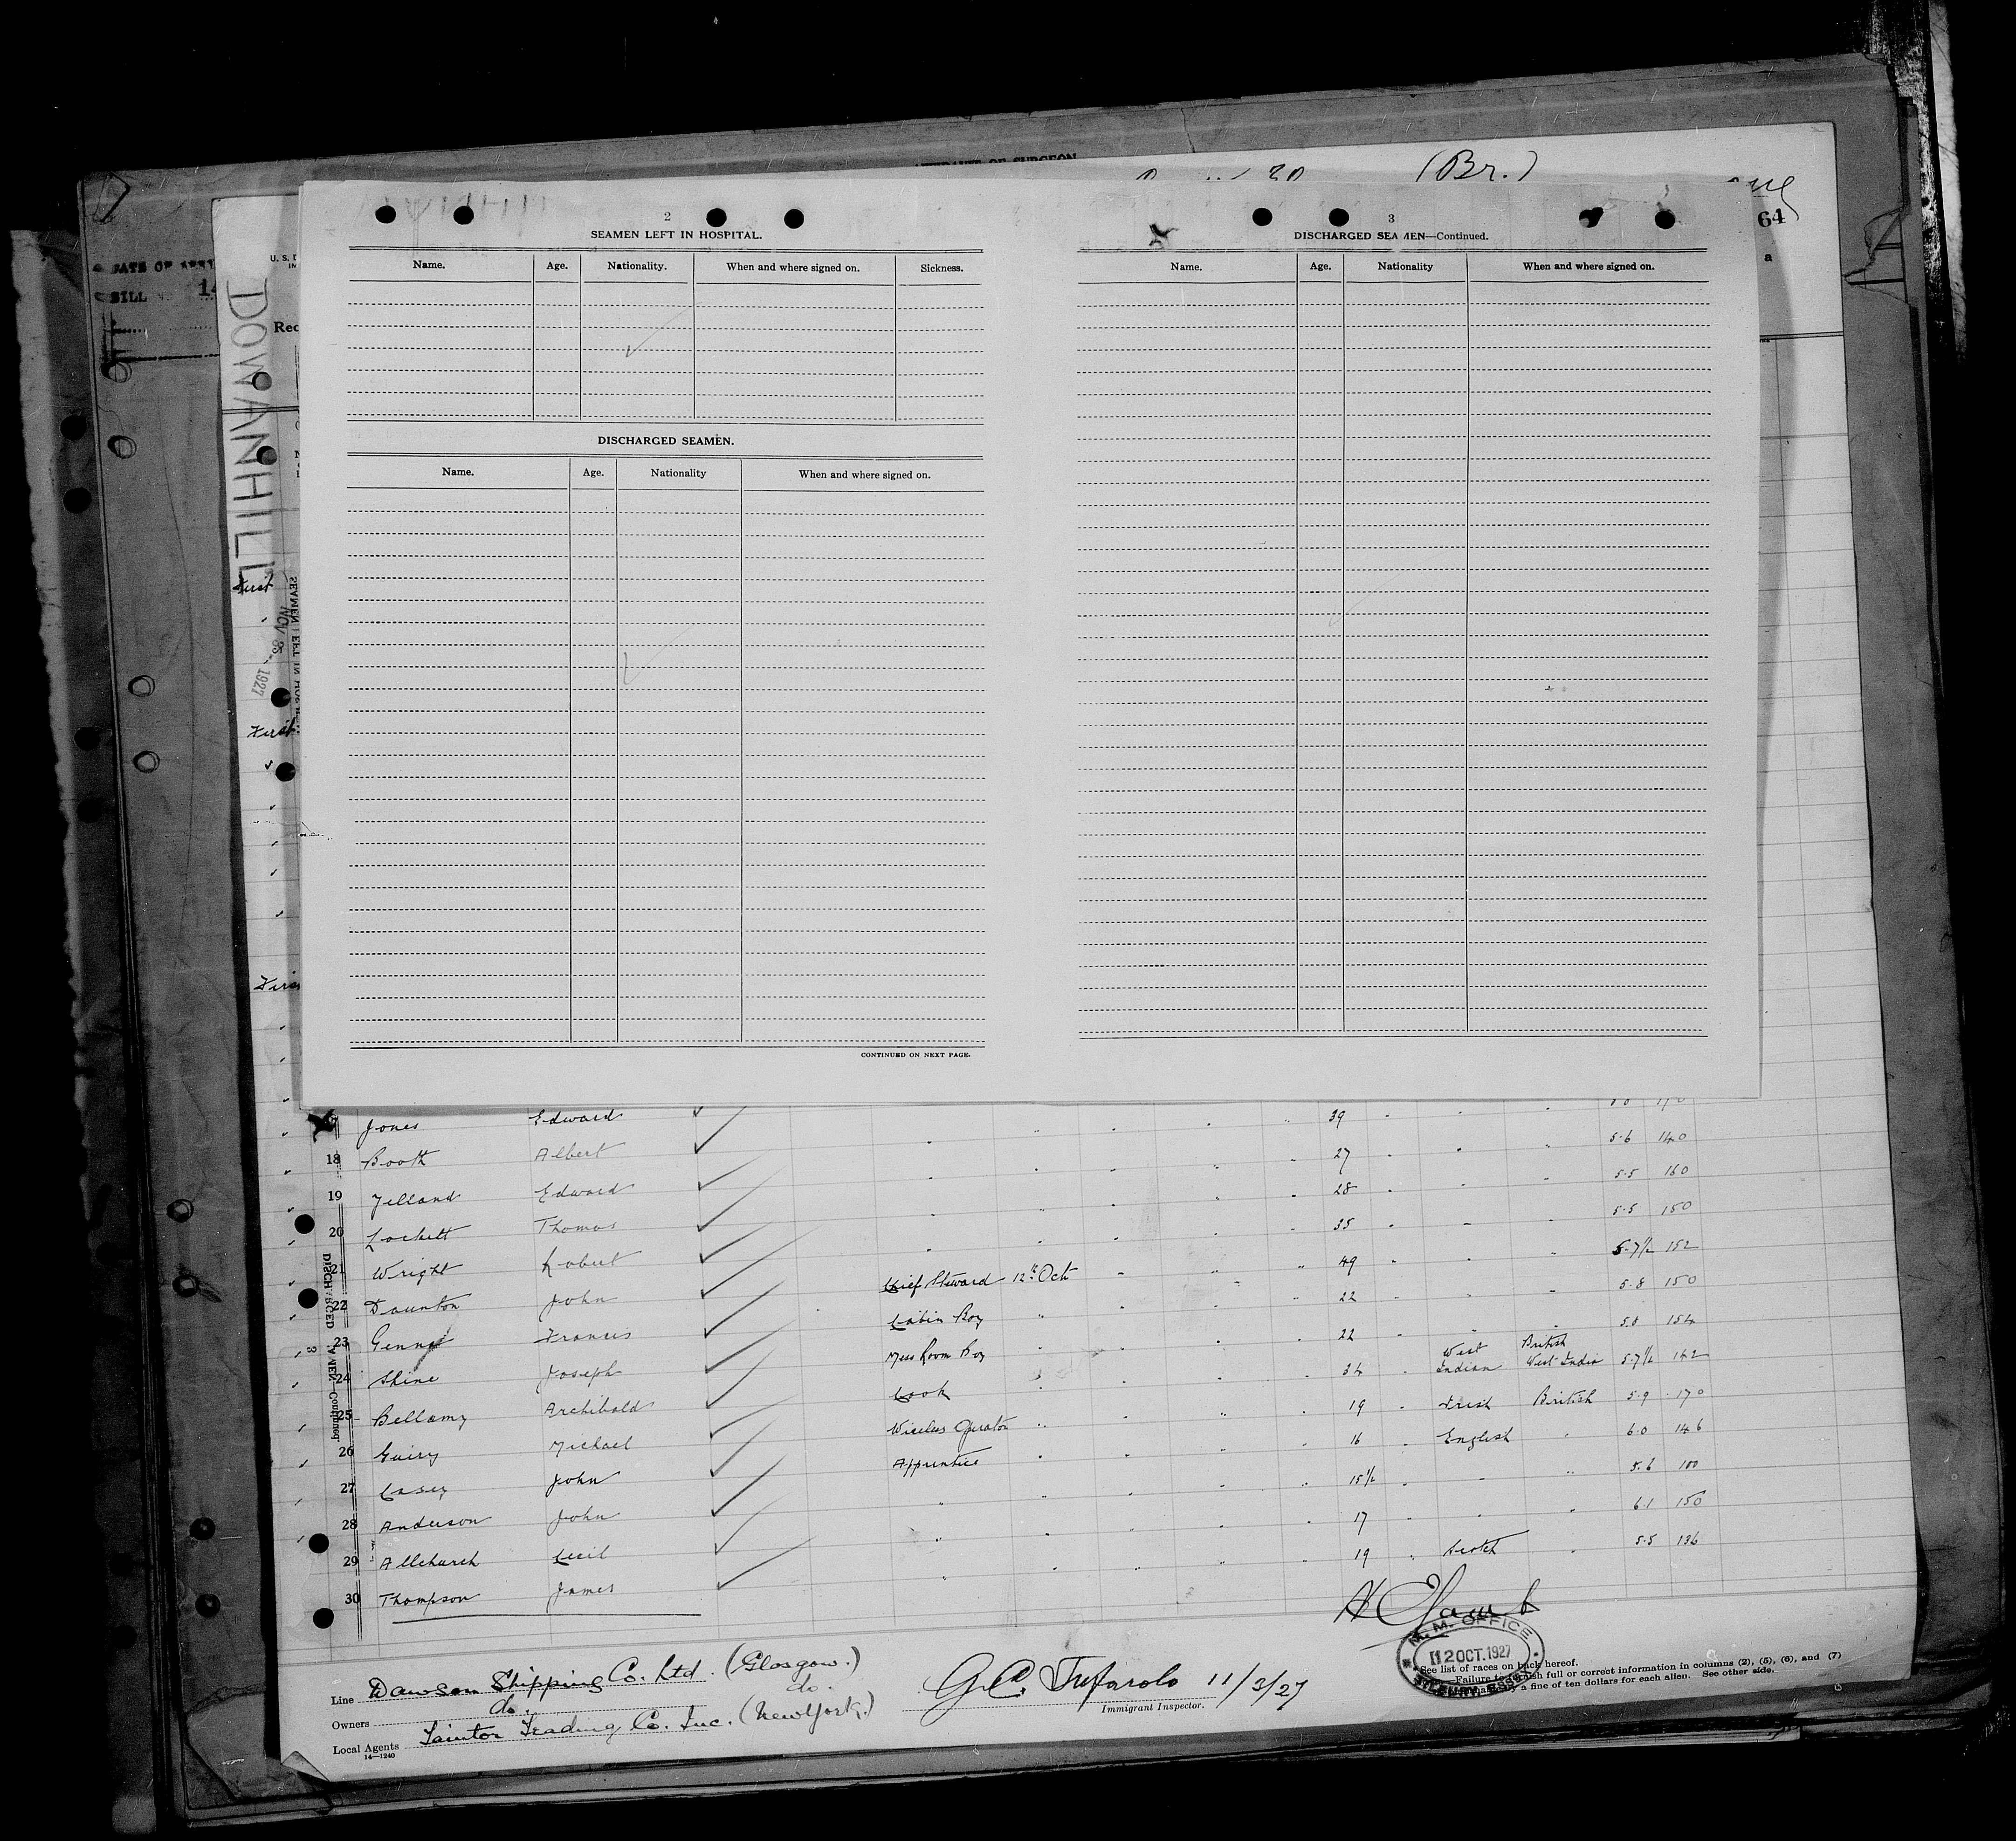 (Br.)
64
a
DOWANHILL
NOV 3 - 1927
First
First
2
SEAMEN LEFT IN HOSPITAL.
Name. Age. Nationality. When and where signed on. Sickness.
DISCHARGED SEAMEN.
Name. Age. Nationality When and where signed on.
CONTINUED ON NEXT PAGE.
3
DISCHARGED SEAMEN—Continued.
Name. Age. Nationality When and where signed on.
Jones Edward 39
18 Booth Albert 27 5-6 140
19 Yelland Edward 28 5-5 160
20 Lockett Thomas 35 5-5 150
21 Wright Robert Chief Steward 12th Oct 49 5-7½ 152
22 Daunton John Cabin Boy 22 5-8 150
23 Francis Mess Room Boy 22 5-8 154
24 Shine Joseph Cook 34 West Indian British West India 5-7½ 142
25 Bellamy Archibald Wireless Operator 19 Irish British 5-9 170
26 Guiry Michael Apprentice 16 English 6-0 146
27 Casey John 15½ 5-6 100
28 Anderson John 17 6-1 150
29 Allchurch Cecil 19 Scotch 5-5 136
30 Thompson James
DISCHARGED SEAMEN—Continued.
M. M. OFFICE
12 OCT. 1927
TILBURY, ESSEX
Line Dawson Shipping Co. Ltd. (Glasgow.)
Owners do. do.
Local Agents Taintor Trading Co. Inc. (New York.)
14—1240
11/3/27
Immigrant Inspector.
See list of races on back hereof.
Failure to furnish full or correct information in columns (2), (5), (6), and (7)
a fine of ten dollars for each alien. See other side.